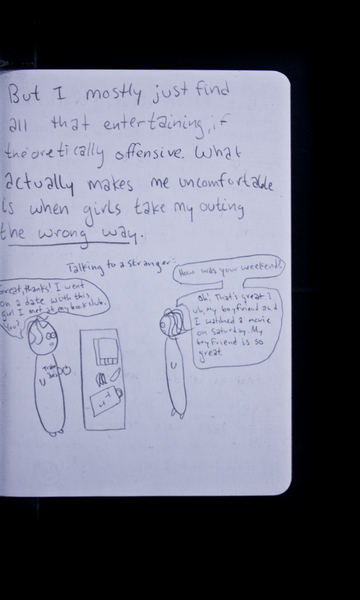 But I mostly just find
all that entertaining, if
theoretically offensive. What
actually makes me uncomfortable
is when girls take my outing
the wrong way.
Talking to a stranger:
How was your weekend?
Great, thanks! I went
on a date with this
girl I met at my book club.
You?
Oh! That's great. I
uh, my boyfriend and
I watched a movie
on Saturday. My
boyfriend is so
great